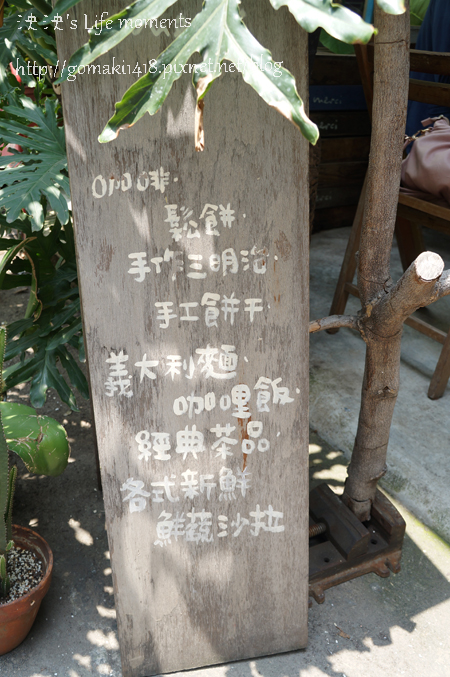 泱泱's Life moments
http://gomaki1418.pixnet.net/blog
咖啡.
鬆餅.
手作三明治.
手工餅干.
義大利麵.
咖哩飯.
經典茶品.
各式新鮮
鮮蔬沙拉